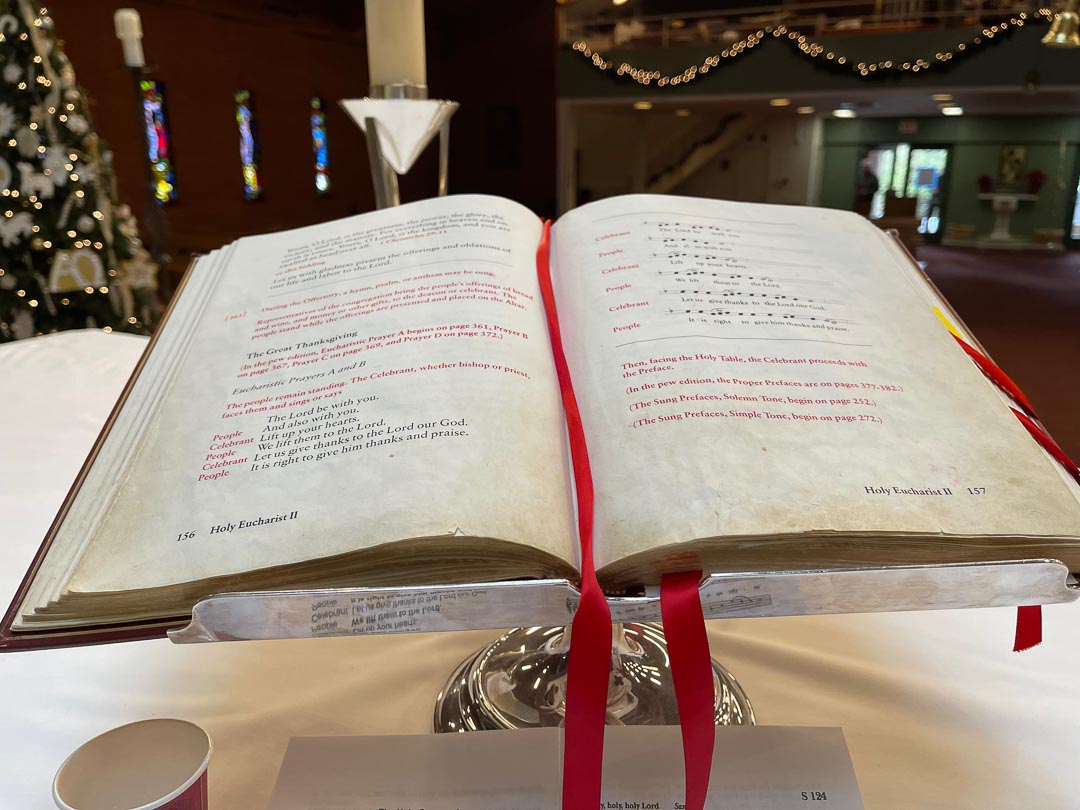 Yours, O Lord, is the greatness, the power, the glory, the
victory, and the majesty. For everything in heaven and on
earth is yours. Yours, O Lord, is the kingdom, and you are
exalted as head over all. 1 Chronicles 29:11
or this bidding
Let us with gladness present the offerings and oblations of
our life and labor to the Lord.
[361] During the Offertory, a hymn, psalm, or anthem may be sung.
Representatives of the congregation bring the people's offerings of bread
and wine, and money or other gifts, to the deacon or celebrant. The
people stand while the offerings are presented and placed on the Altar.
The Great Thanksgiving
(In the pew edition, Eucharistic Prayer A begins on page 361, Prayer B
on page 367, Prayer C on page 369, and Prayer D on page 372.)
Eucharistic Prayers A and B
The people remain standing. The Celebrant, whether bishop or priest,
faces them and sings or says
The Lord be with you.
People And also with you.
Celebrant Lift up your hearts.
People We lift them to the Lord.
Celebrant Let us give thanks to the Lord our God.
People It is right to give him thanks and praise.
156 Holy Eucharist II
Celebrant The Lord be with you.
People And al so with you.
Celebrant Lift up your hearts.
People We lift them to the Lord.
Celebrant Let us give thanks to the Lord our God.
People It is right to give him thanks and praise.
Then, facing the Holy Table, the Celebrant proceeds with
the Preface.
(In the pew edition, the Proper Prefaces are on pages 377-382.)
(The Sung Prefaces, Solemn Tone, begin on page 252.)
(The Sung Prefaces, Simple Tone, begin on page 272.)
Holy Eucharist II 157
holy, holy Lord
S 124